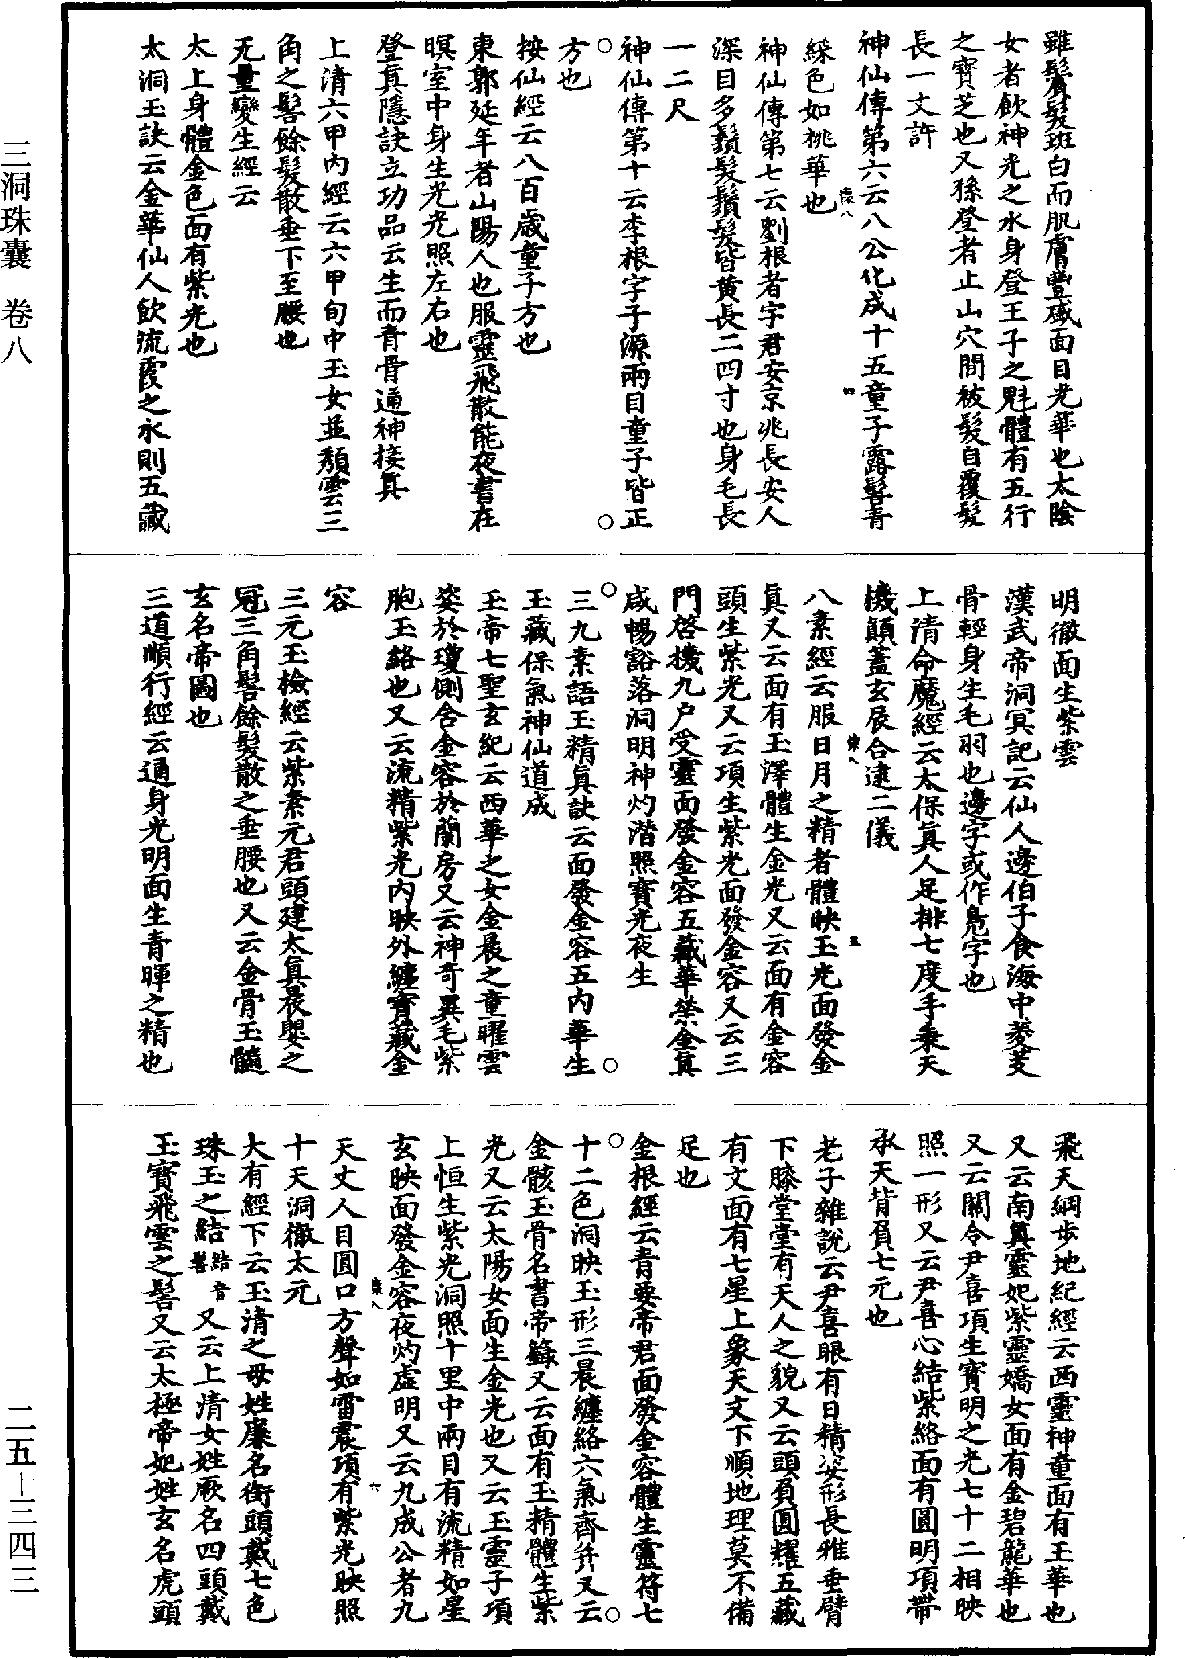 三洞珠囊 卷八
二五—三四三
雖鬢髮班白而肌膚豐盛面目光華也太陰
女者飲神光之水身登王子之魁體有五行
之寶芝也又孫登者止山穴間被髮自覆髮
長一丈許
神仙傳第六云八公化成十五童子露髻青
綵色如桃華也
神仙傳第七云劉根者字君安京兆長安人
深目多鬚髮鬚髮皆黄長二四寸也身毛長
一二尺
神仙傳第十云李根字子源兩目童子皆正
方也
按仙經云八百歲童子方也
東郭延年者山陽人也服靈飛散能夜書在
暝室中身生光光照左右也
登真隱訣立功品云生而青骨通神接真
上清六甲內經云六甲旬中玉女並頹雲三
角之髻餘髮散垂下至腰也
无量變生經云
太上身體金色面有紫光也
太洞玉訣云金華仙人飲流霞之水則五藏
明徹面生紫雲
漢武帝洞冥記云仙人邊伯子食海中菱芰
骨輕身生毛羽也邊字或作凫字也
上清命魔經云太保真人足排七度手秉天
機顛蓋玄辰合逮二儀
八素經云服日月之精者體映玉光面發金
真又云面有玉澤體生金光又云面有金容
頭生紫光又云項生紫光面發金容又云三
門啓機九户受靈面發金容五藏華榮金真
咸暢豁落洞明神灼潛照寶光夜生
三九素語玉精真訣云面發金容五內華生
玉藏保氣神仙道成
玉帝七聖玄紀云西華之女金晨之童曜雲
姿於瓊側含金容於蘭房又云神奇異毛紫
胞玉絡也又云流精紫光內映外纏寶藏金
容
三元玉檢經云紫素元君頭建太真晨嬰之
冠三角髻餘髮散之垂腰也又云金骨玉髓
玄名帝圖也
三道順行經云通身光明面生青暉之精也
飛天綱步地紀經云西靈神童面有玉華也
又云南真靈妃紫靈嬌女面有金碧龍華也
又云關令尹喜項生寶明之光七十二相映
照一形又云尹喜心結紫絡面有圓明項帶
承天背負七元也
老子雜說云尹喜眼有日精姿形長雅垂臂
下膝堂堂有天人之貌又云頭負圓耀五藏
有文面有七星上象天文下順地理莫不備
足也
金根經云青要帝君面發金容體生靈符七
十二色洞映玉形三晨纏絡六氣齊并又云
金骸玉骨名書帝籙又云面有玉精體生紫
光又云太陽女面生金光也又云玉靈子項
上恒生紫光洞照十里中兩目有流精如星
玄映面發金容夜灼虛明又云九成公者九
天丈人目圓口方聲如雷震項有紫光映照
十天洞徹太元
大有經下云玉清之母姓廉名衒頭戴七色
珠玉之結結音髻又云上清女姓厥名四頭戴
玉寶飛雲之髻又云太極帝妃姓玄名虎頭